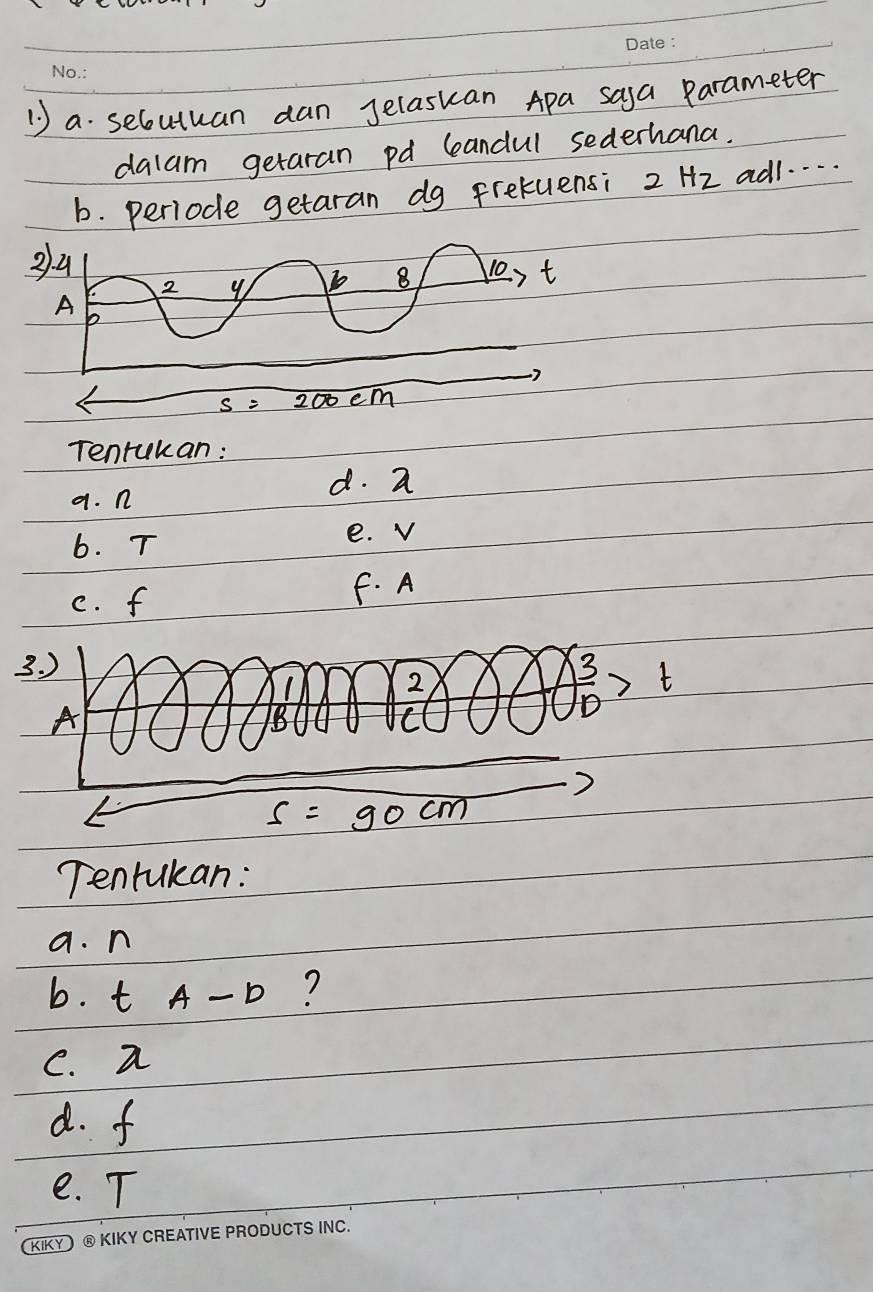 Date :
No.:
1.) a. sebutkan dan Jelaskan Apa saja Parameter
dalam getaran pd bandul sederhana.
b. periode getaran dg frekuensi 2 Hz adl....
2). 4
2 4 6 8 10 > t
A
0
s = 200 cm
Tentukan :
a. n d. λ
b. T e. v
c. f f. A
3.)
1 2 3 > t
A B C D
s = 90 cm
Tentukan :
a. n
b. t A - D ?
c. λ
d. f
e. T
KIKY ® KIKY CREATIVE PRODUCTS INC.